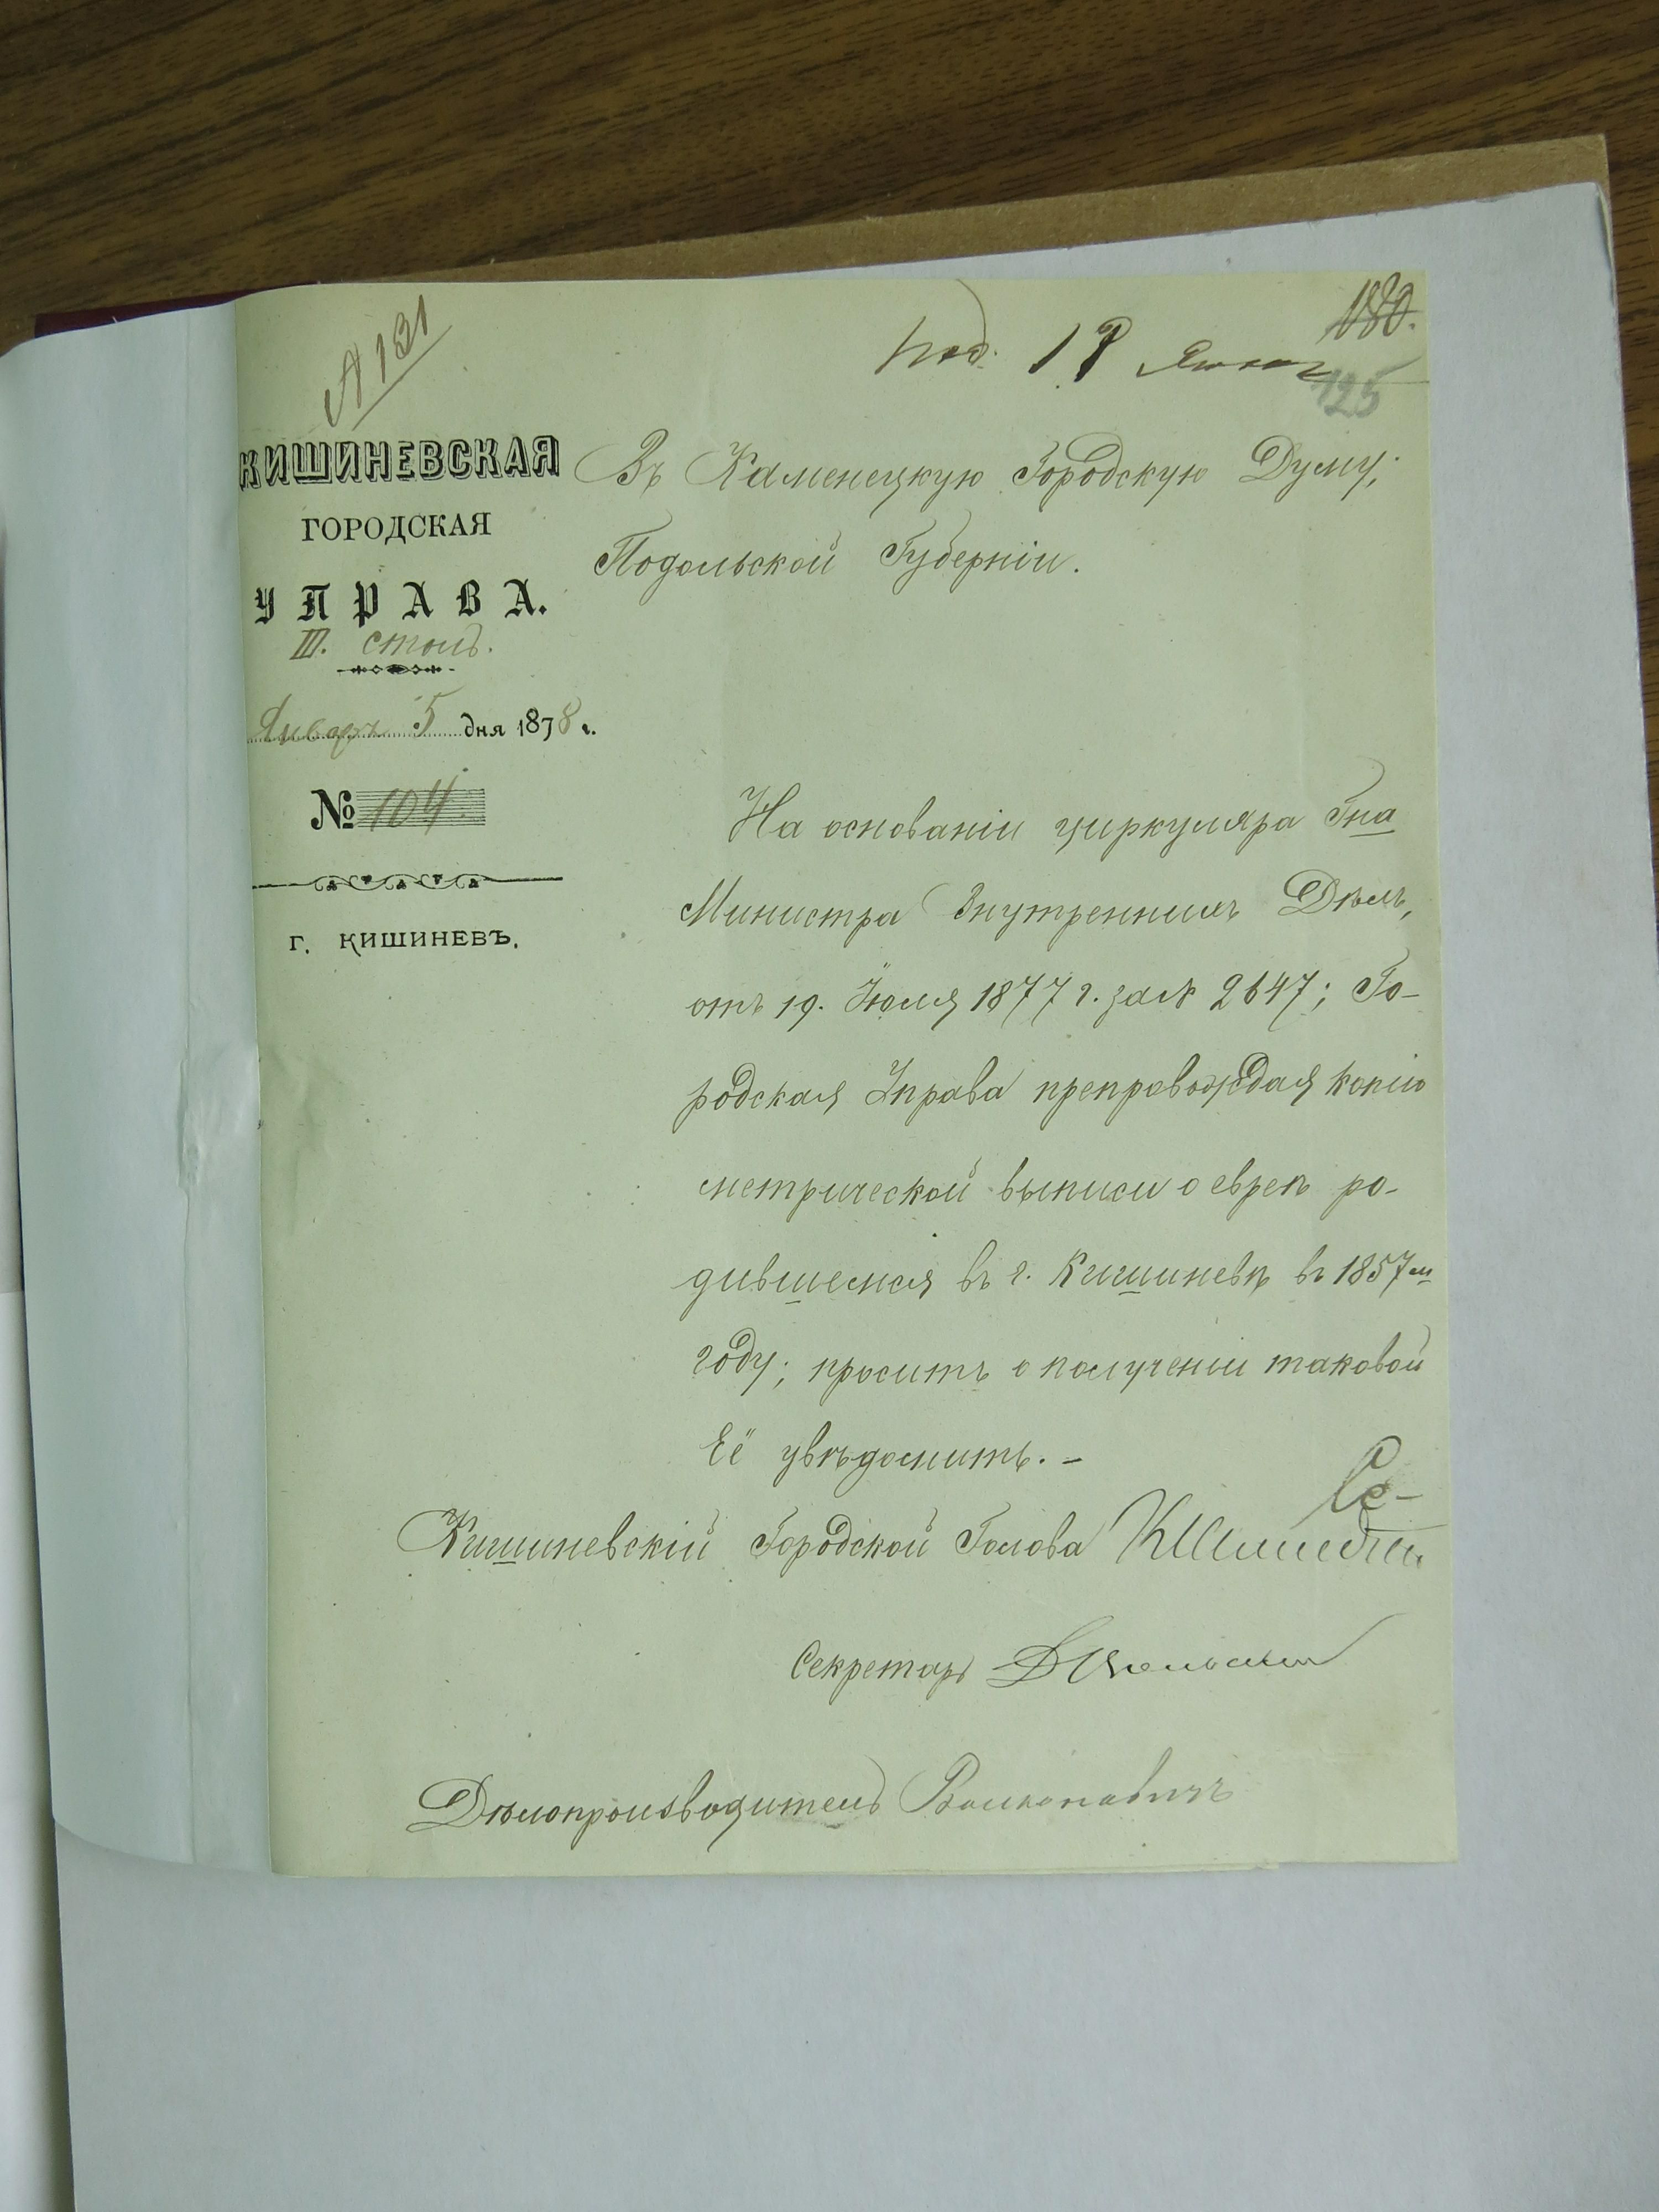 131
180.
под. 18 Янв
125
КИШИНЕВСКАЯ
ГОРОДСКАЯ
УПРАВА.
III. столъ.
Января 5 дня 1878 г.
№ 104.
г. КИШИНЕВЪ.
Въ Каменецкую Городскую Думу,
Подольской Губерніи.
На основаніи циркуляра Гна
Министра Внутреннихъ Дѣлъ,
отъ 19. Іюля 1877 г. за № 2647; Го-
родская Управа препровождая копію
метрической выписи о евреѣ ро-
дившемся въ г. Кишиневѣ въ 1857м
году; проситъ о полученіи таковой
Её увѣдомить. –
Кишиневскій Городской Голова КШмидтъ
Секретарь
Дѣлопроизводитель